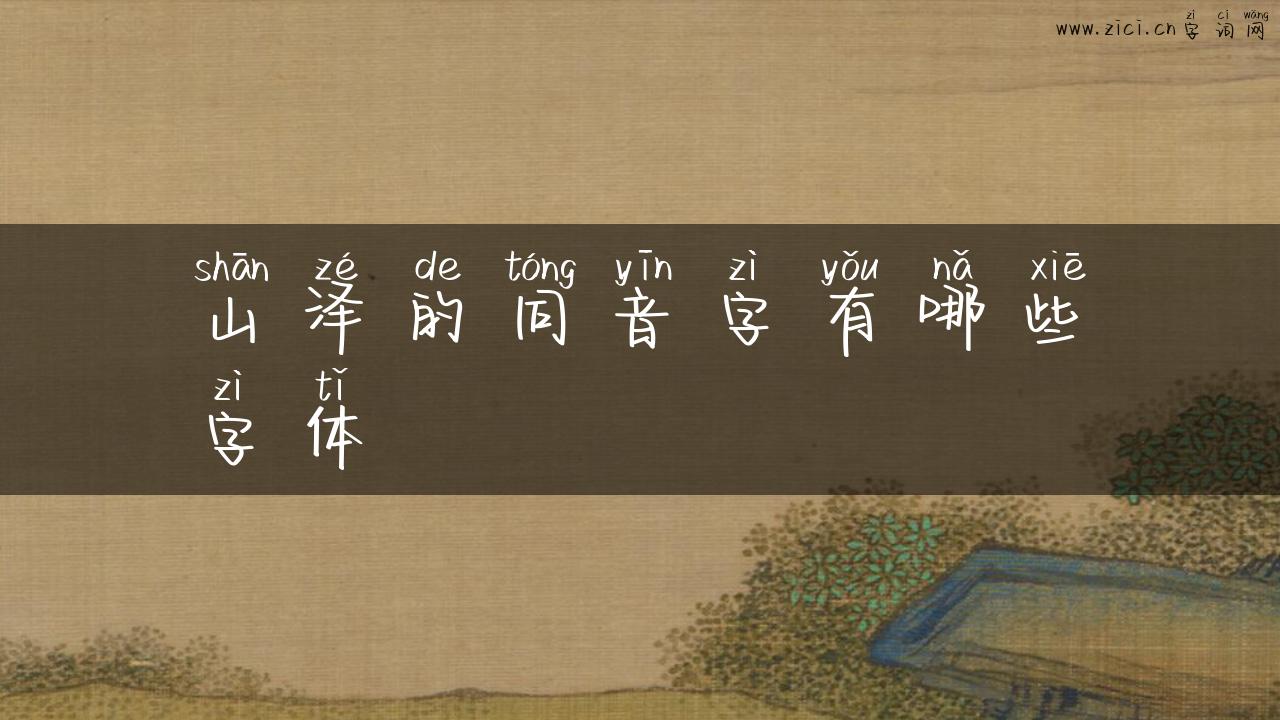 zì cí wǎng
www.zici.cn 字 词 网
shān zé de tóng yīn zì yǒu nǎ xiē
山 泽 的 同 音 字 有 哪 些
zì tǐ
字 体